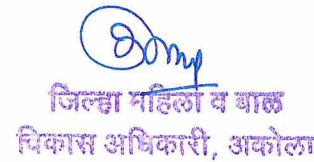 जिल्हा महिला व बाल
विकास अधिकारी, अकोला